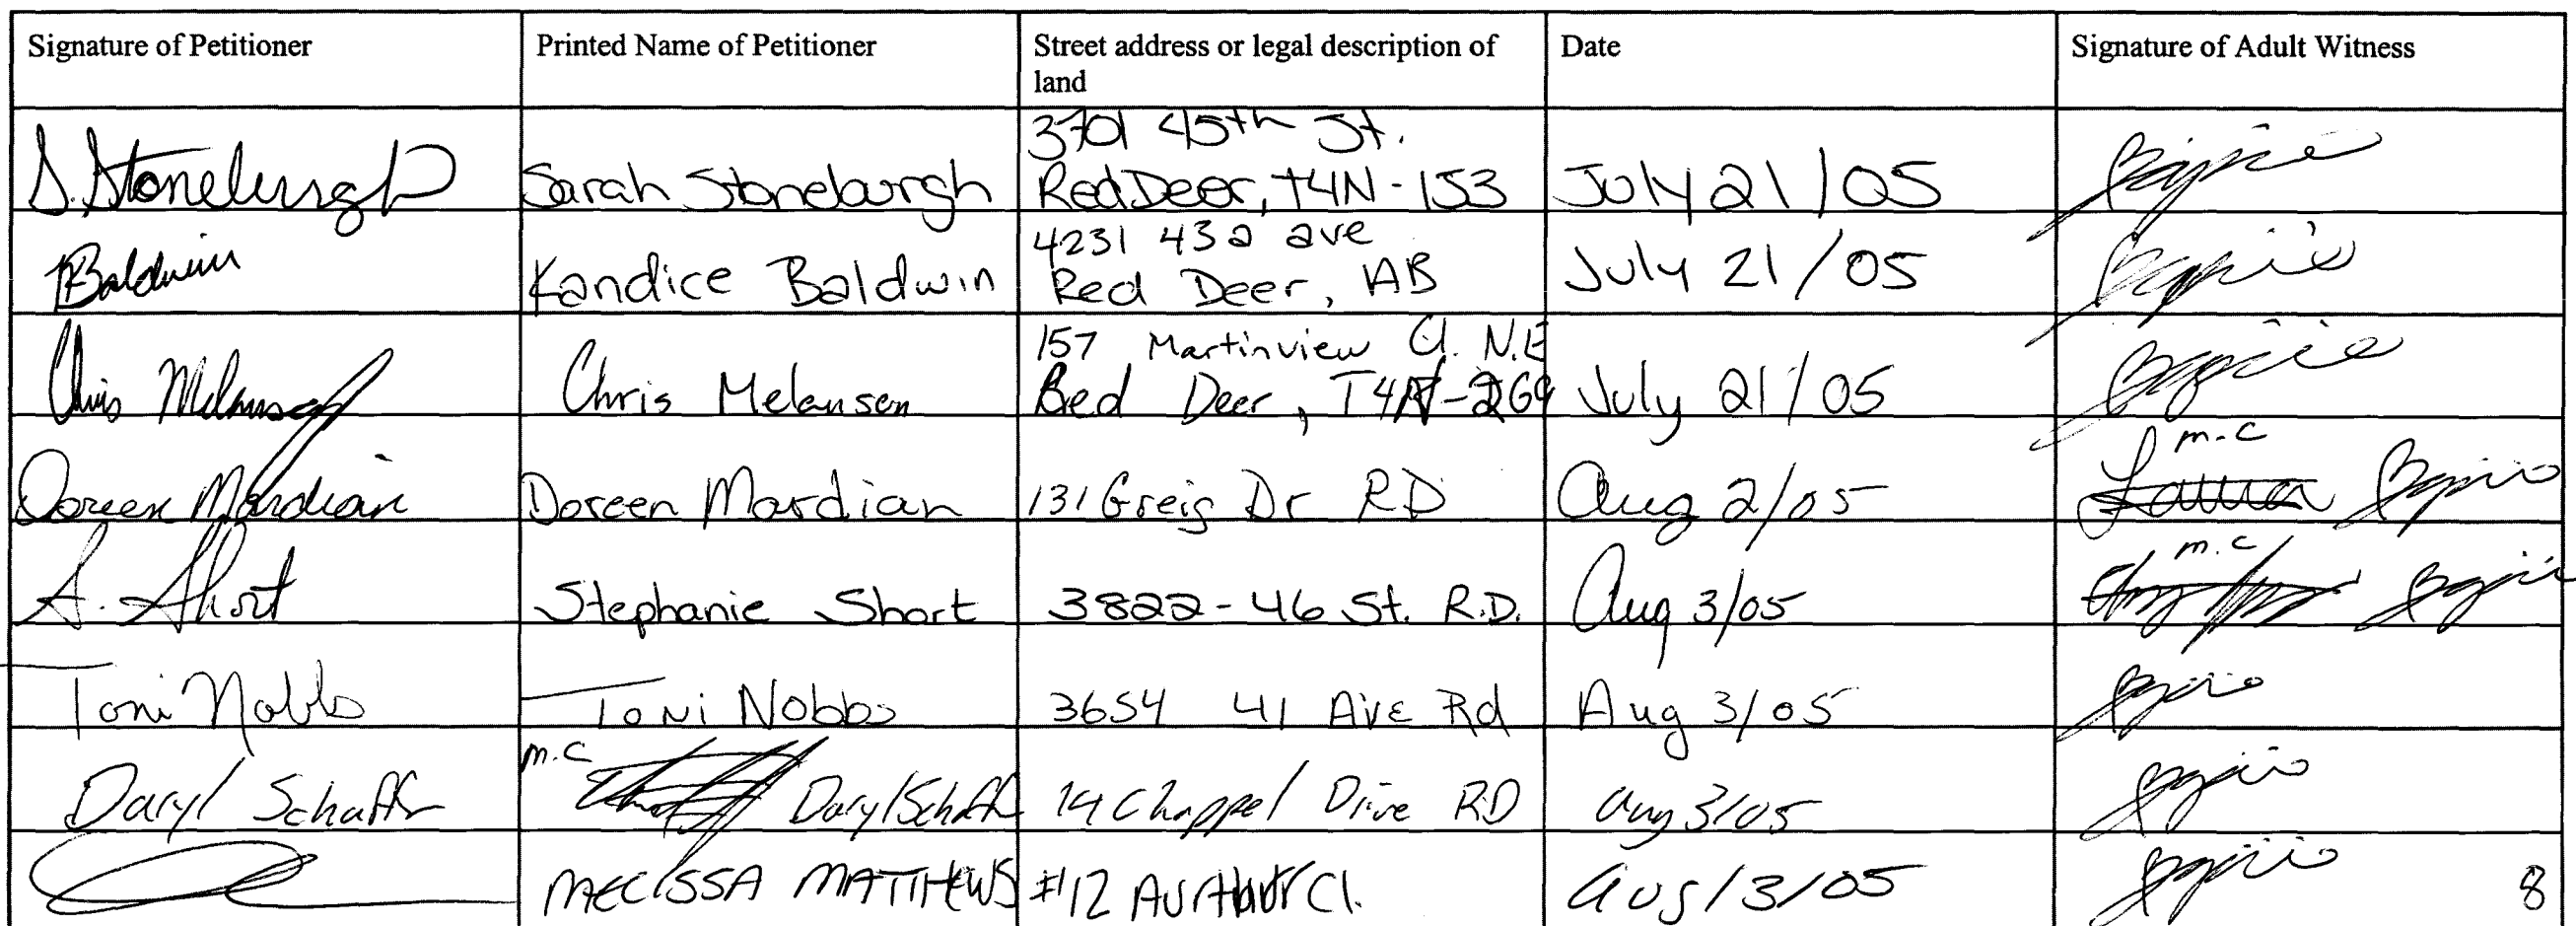 Signature of Petitioner
Printed Name of Petitioner
Street address or legal description of
land
Date
Signature of Adult Witness
S. Stoneburgh
Sarah Stoneburgh
3701 45th St.
Red Deer, T4N-1S3
July 21/05
Baldwin
Kandice Baldwin
4231 43a ave
Red Deer, AB
July 21/05
Chris Melanson
Chris Melanson
157 Martinview Cl. N.E
Red Deer, T4N-2G9
July 21/05
Doreen Mardian
Doreen Mardian
131 Greig Dr RD
Aug 2/05
m.c
Laura
S. Short
Stephanie Short
3822-46 St. R.D.
Aug 3/05
m.c
Toni Nobbs
Toni Nobbs
3654 41 Ave Rd
Aug 3/05
Daryl Schaffr
m.c
Daryl Schaffr
14 Chappel Drive RD
Aug 3/05
MELISSA MATTHEWS
#12 Cl.
Aug/3/05
8